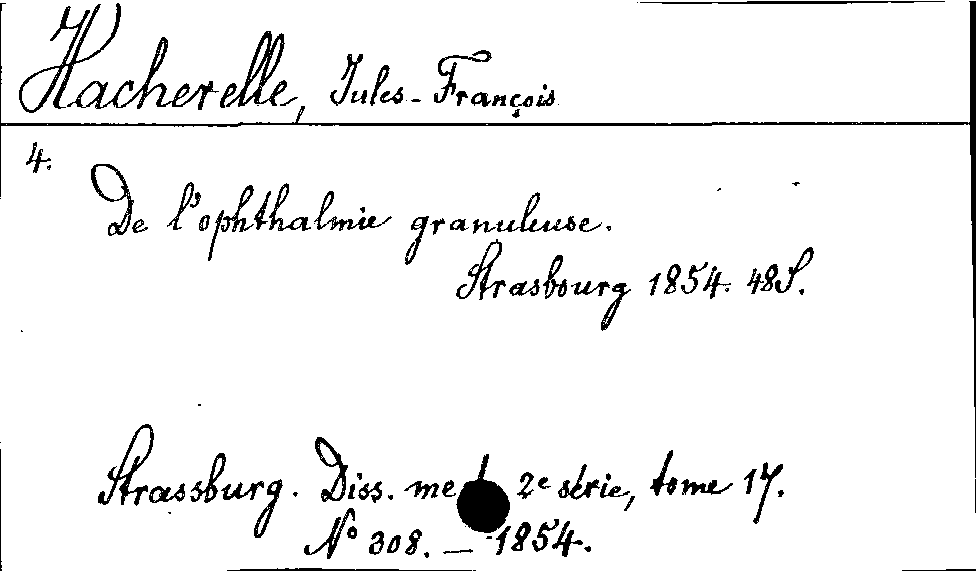 Hacherelle, Jules-François
4.
De l'ophthalmie granuleuse.
Strasbourg 1854. 48 S.
Strassburg. Diss. med. 2e série, tome 17.
No 308. — 1854.